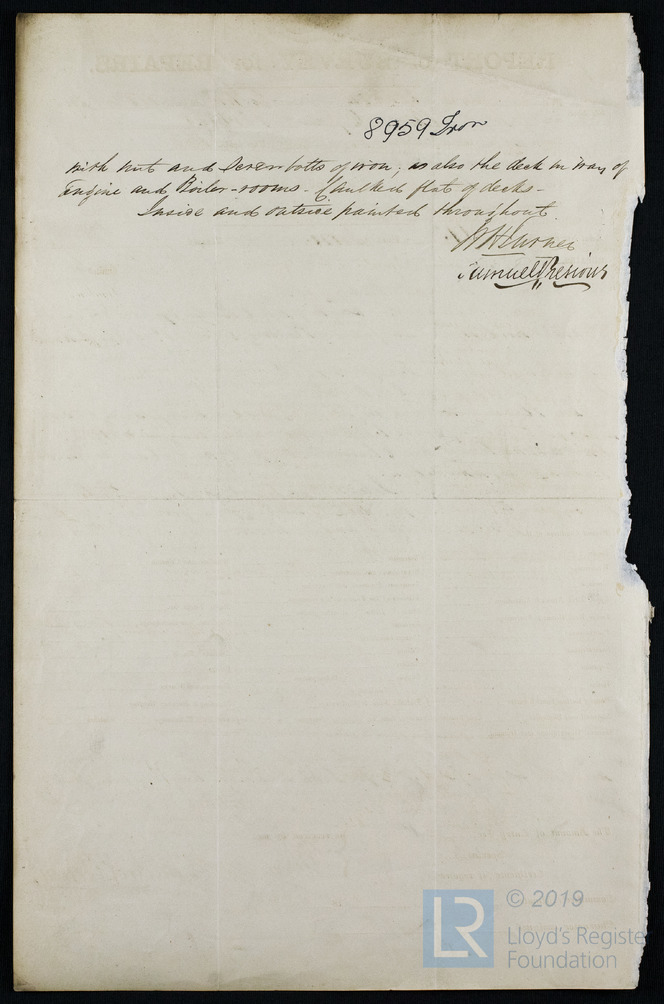 8959 Iron
with nut and screw bolts of iron, as also the deck in way of
Engine and Boiler-rooms - Caulked flat of decks -
Inside and outside painted throughout.
Samuel Presious
© 2019
LR
Lloyd's Registe
Foundation